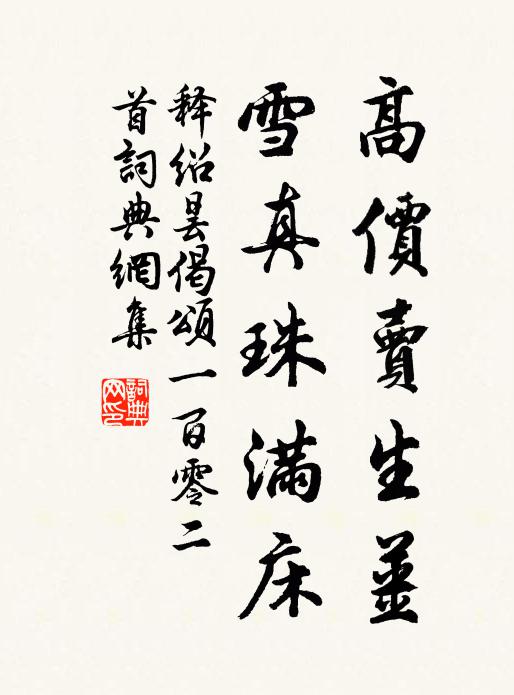 高價賣生薑
雪真珠滿床
释绍昙偈頌一百零二
首詞典網集
詞典网印